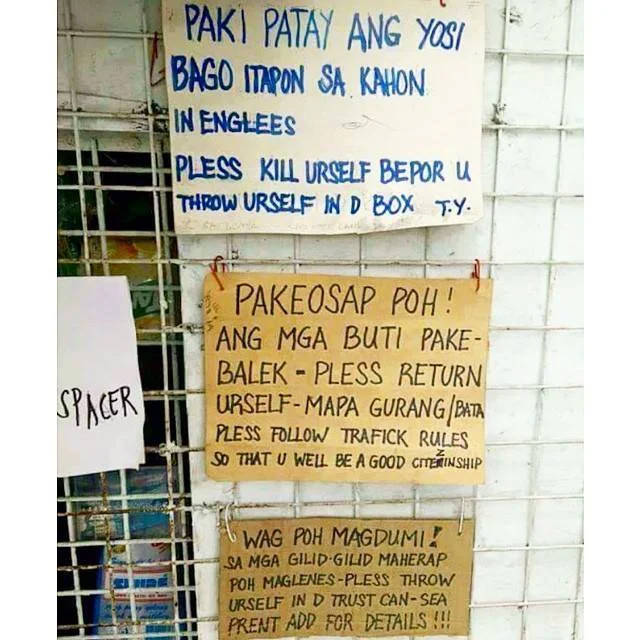 PAKI PATAY ANG YOSI
BAGO ITAPON SA KAHON
IN ENGLEES
PLESS KILL URSELF BEPOR U
THROW URSELF IN D BOX T.Y.
SPACER
PAKEOSAP POH!
ANG MGA BUTI PAKE-
BALEK - PLESS RETURN
URSELF - MAPA GURANG/BATA
PLESS FOLLOW TRAFICK RULES
SO THAT U WELL BE A GOOD CITEZINSHIP
WAG POH MAGDUMI!
SA MGA GILID-GILID MAHERAP
POH MAGLENES-PLESS THROW
URSELF IN D TRUST CAN-SEA
PRENT ADD FOR DETAILS !!!